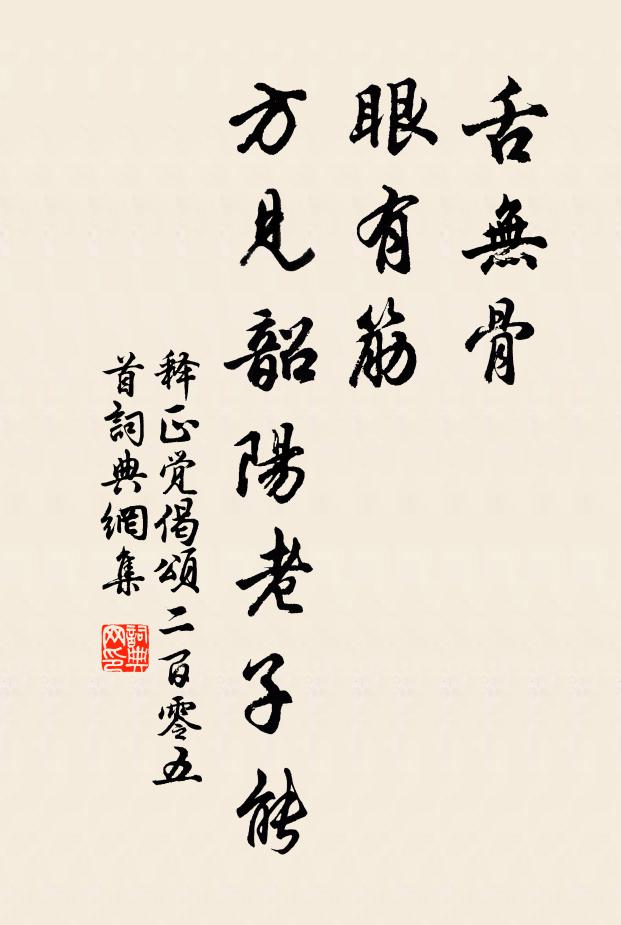 舌無骨
眼有筋
方見韶陽老子能
释正觉偈頌二百零五
首詞典網集
詞典网印